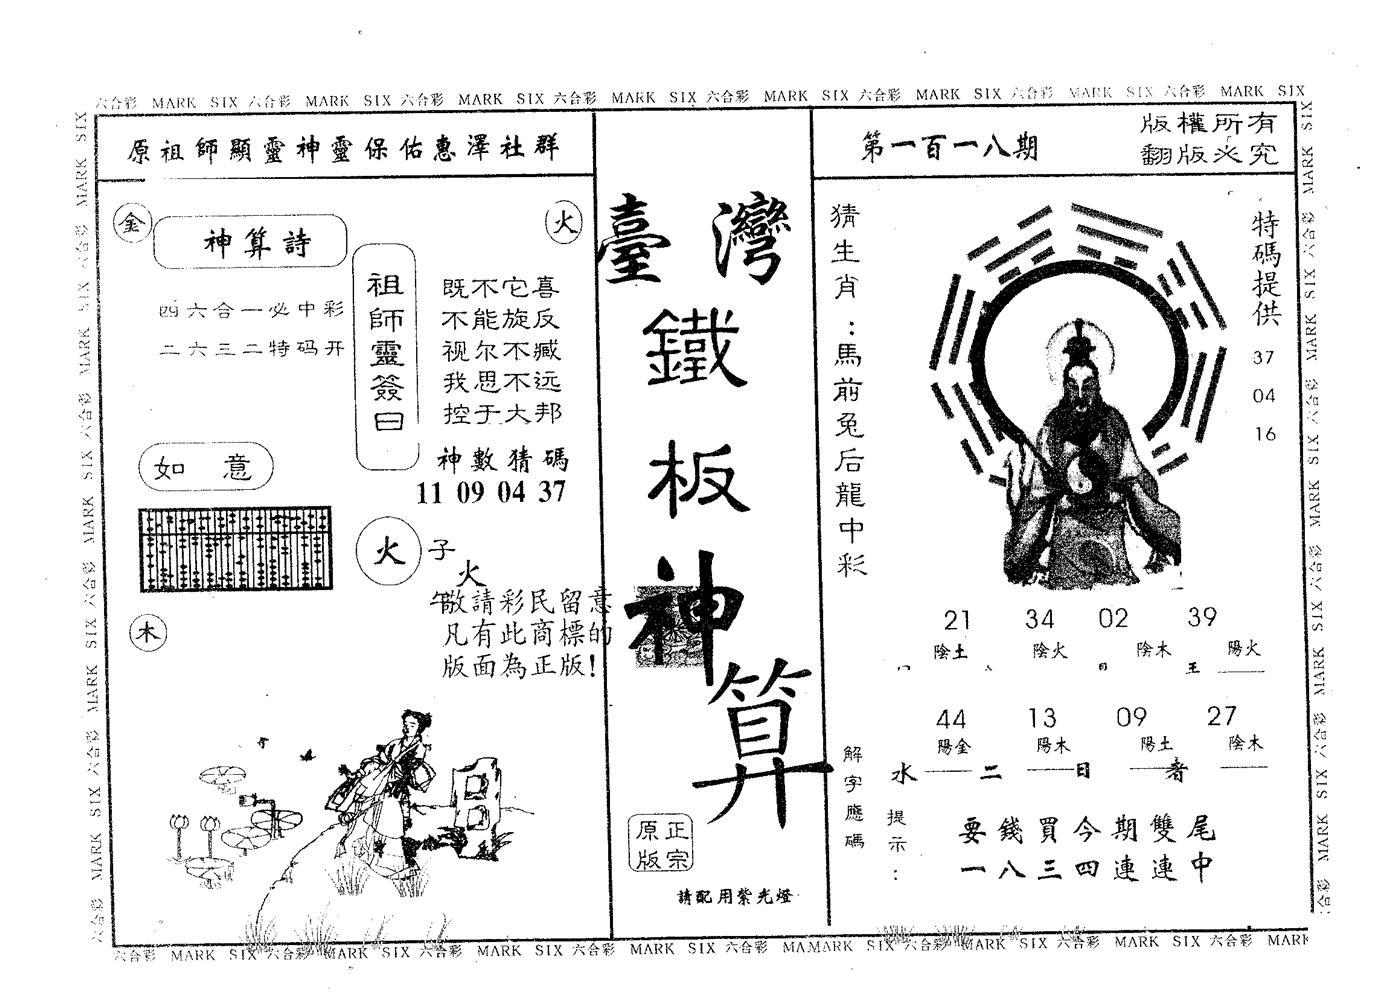 六合彩 MARK SIX 六合彩 MARK SIX 六合彩 MARK SIX 六合彩 MARK SIX 六合彩 MARK SIX 六合彩 MARK SIX 六合彩 MARK SIX 六合彩 MARK SIX
原祖師顯靈神靈保佑惠澤社群
金
神算詩
火
四六合一必中彩
二六三二特码开
祖師靈簽曰
既不它喜
不能旋反
视尔不臧
我思不远
控于大邦
神數猜碼
11 09 04 37
如意
火
子
火
午
敬請彩民留意
凡有此商標的
版面為正版!
木
臺灣
鐵
板
神
算
正宗
原版
請配用紫光燈
第一百一八期
版權所有
翻版必究
猜生肖:馬前兔后龍中彩
特碼提供
37
04
16
21 34 02 39
陰土 陰火 陰木 陽火
日 王
44 13 09 27
陽金 陽木 陽土 陰木
水 二 日 者
解字應碼
提示:
要錢買今期雙尾
一八三四連連中
六合彩 MARK SIX 六合彩 MARK SIX 六合彩 MARK SIX 六合彩 MARK SIX 六合彩 MAMARK SIX 六合彩 MARK SIX 六合彩 MARK SIX 六合彩 MARK